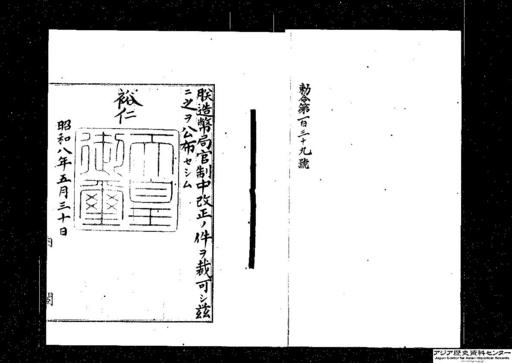 勅令第百三十九號
朕造幣局官制中改正ノ件ヲ裁可シ茲
ニ之ヲ公布セシム
裕仁
天皇御璽
昭和八年五月三十日
内閣
アジア歴史資料センター
Japan Center for Asian Historical Records